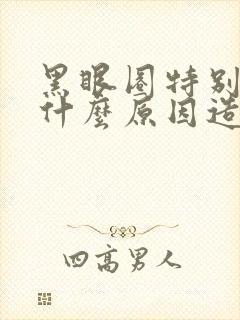 黑眼圈特别
什麼原因造
四高男人